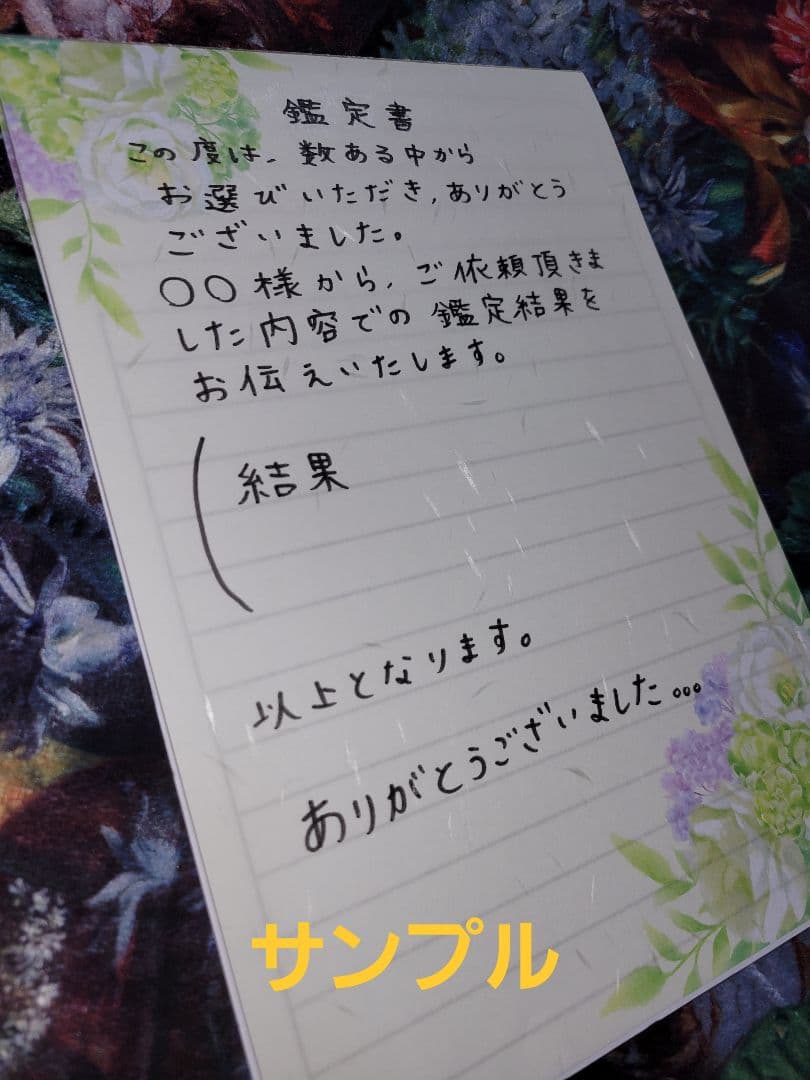 鑑定書
この度は、数ある中から
お選びいただき、ありがとう
ございました。
○○様から、ご依頼頂きま
した内容での鑑定結果を
お伝えいたします。
( 結果
以上となります。
ありがとうございました...
サンプル